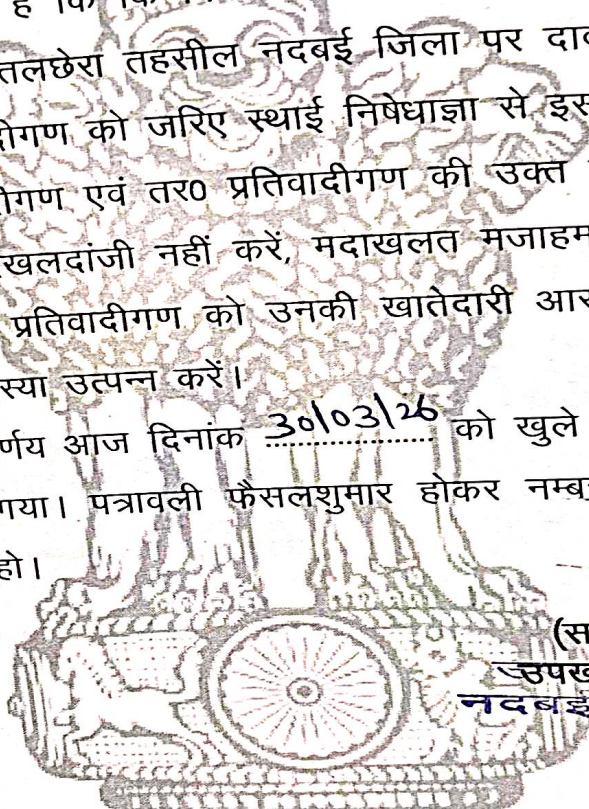 है कि
तलछेरा तहसील नदबई जिला पर दाव
ीगण को जरिए स्थाई निषेधाज्ञा से इस
ीगण एवं तर0 प्रतिवादीगण की उक्त
खलदांजी नहीं करें, मदाखलत मजाहम
प्रतिवादीगण को उनकी खातेदारी आर
स्या उत्पन्न करें।
र्णय आज दिनांक 30/03/26 को खुले
गया। पत्रावली फैसलशुमार होकर नम्ब
हो।
(स
उपख
नदबई